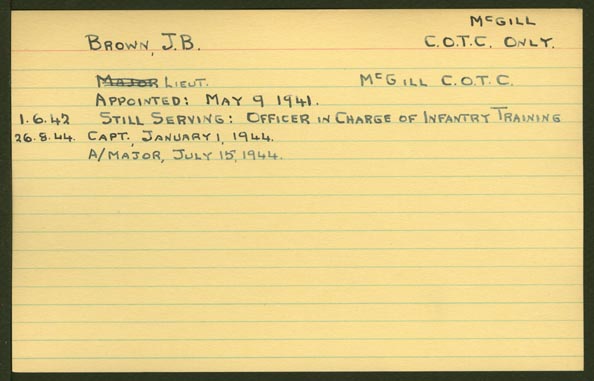 McGILL
BROWN, J.B. C.O.T.C. ONLY.
MAJOR LIEUT. McGILL C.O.T.C.
APPOINTED: MAY 9 1941.
1.6.42 STILL SERVING: OFFICER IN CHARGE OF INFANTRY TRAINING
26.8.44. CAPT., JANUARY 1, 1944.
A/MAJOR, JULY 15, 1944.